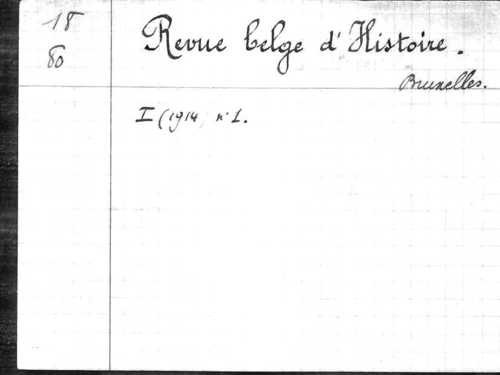 18
80
Revue belge d'Histoire.
Bruxelles.
I (1914) n° 1.